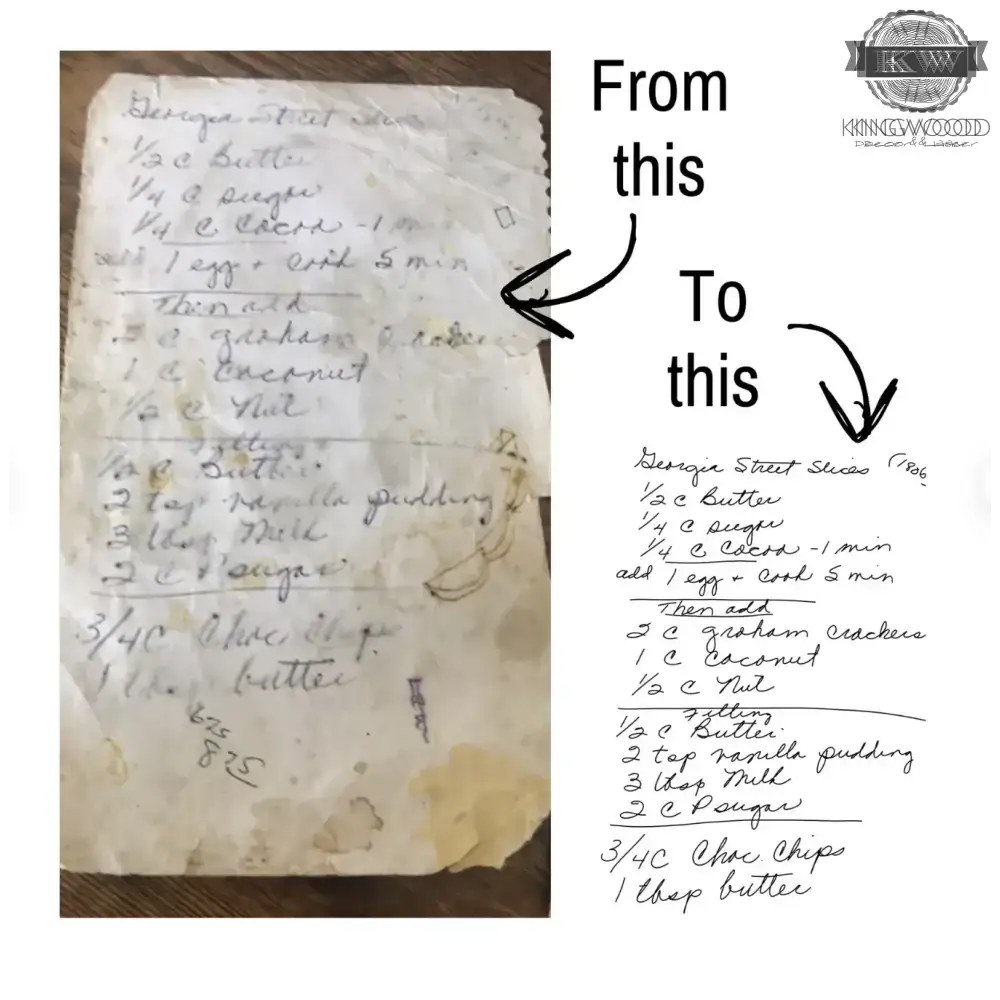 KW
KINGWOOD
DECOR & LASER
From
this
To
this
Georgia Street Slices
1/2 c Butter
1/4 c sugar
1/4 c Cocoa - 1 min
add 1 egg + cook 5 min
Then add
2 c graham crackers
1 c coconut
1/2 c Nut
Filling
1/2 c Butter
2 tsp vanilla pudding
3 tbsp Milk
2 c P sugar
3/4 C Choc Chips
1 tbsp butter
625
825
Georgia Street Slices
1/2 c Butter
1/4 c sugar
1/4 c Cocoa - 1 min
add 1 egg + cook 5 min
Then add
2 c graham crackers
1 c coconut
1/2 c Nut
Filling
1/2 c Butter
2 tsp vanilla pudding
3 tbsp Milk
2 c P sugar
3/4 C Choc. Chips
1 tbsp butter